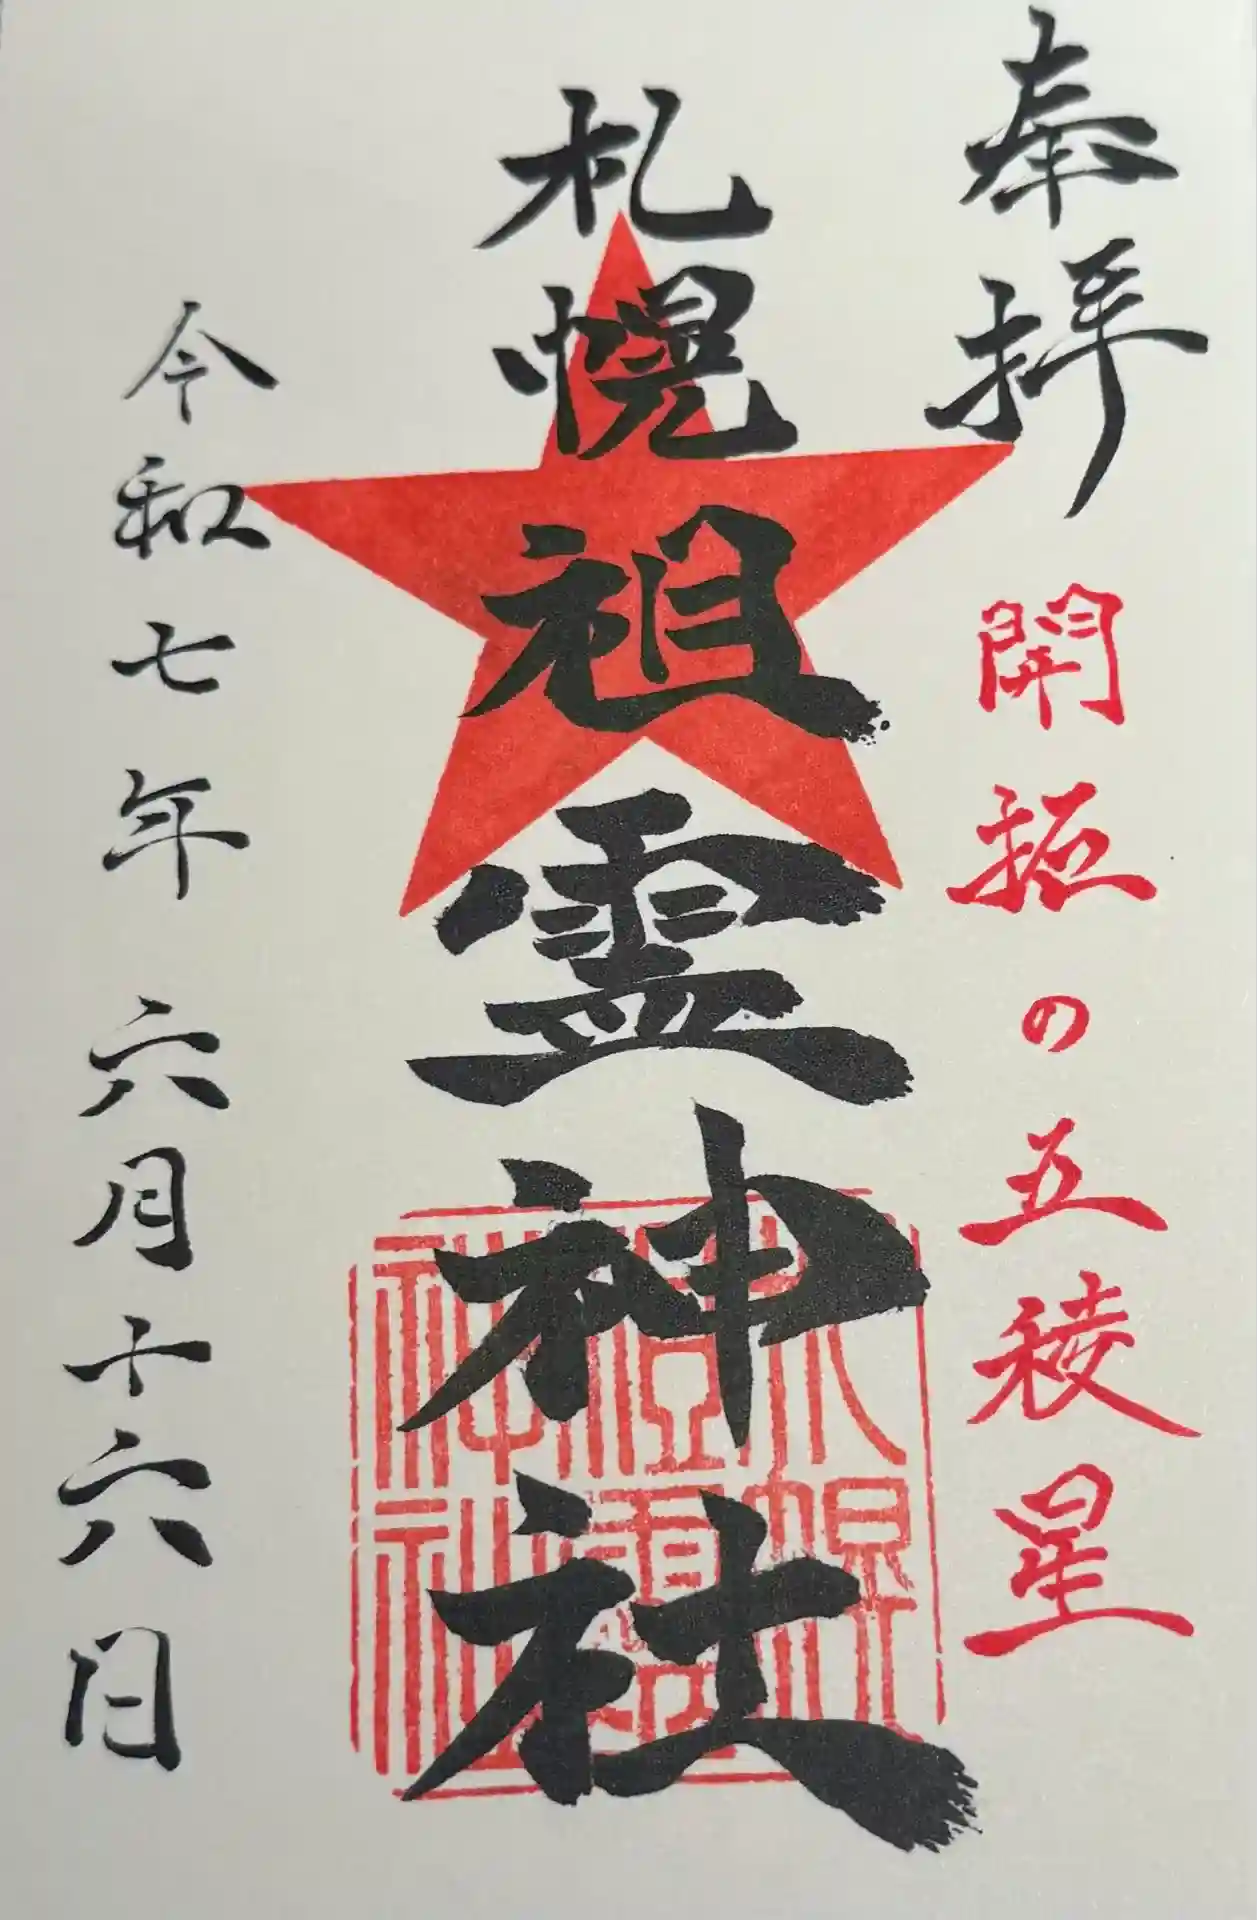 奉拝 開拓の五稜星
札幌祖霊神社
札幌
祖霊
神社
令和七年 六月十六日